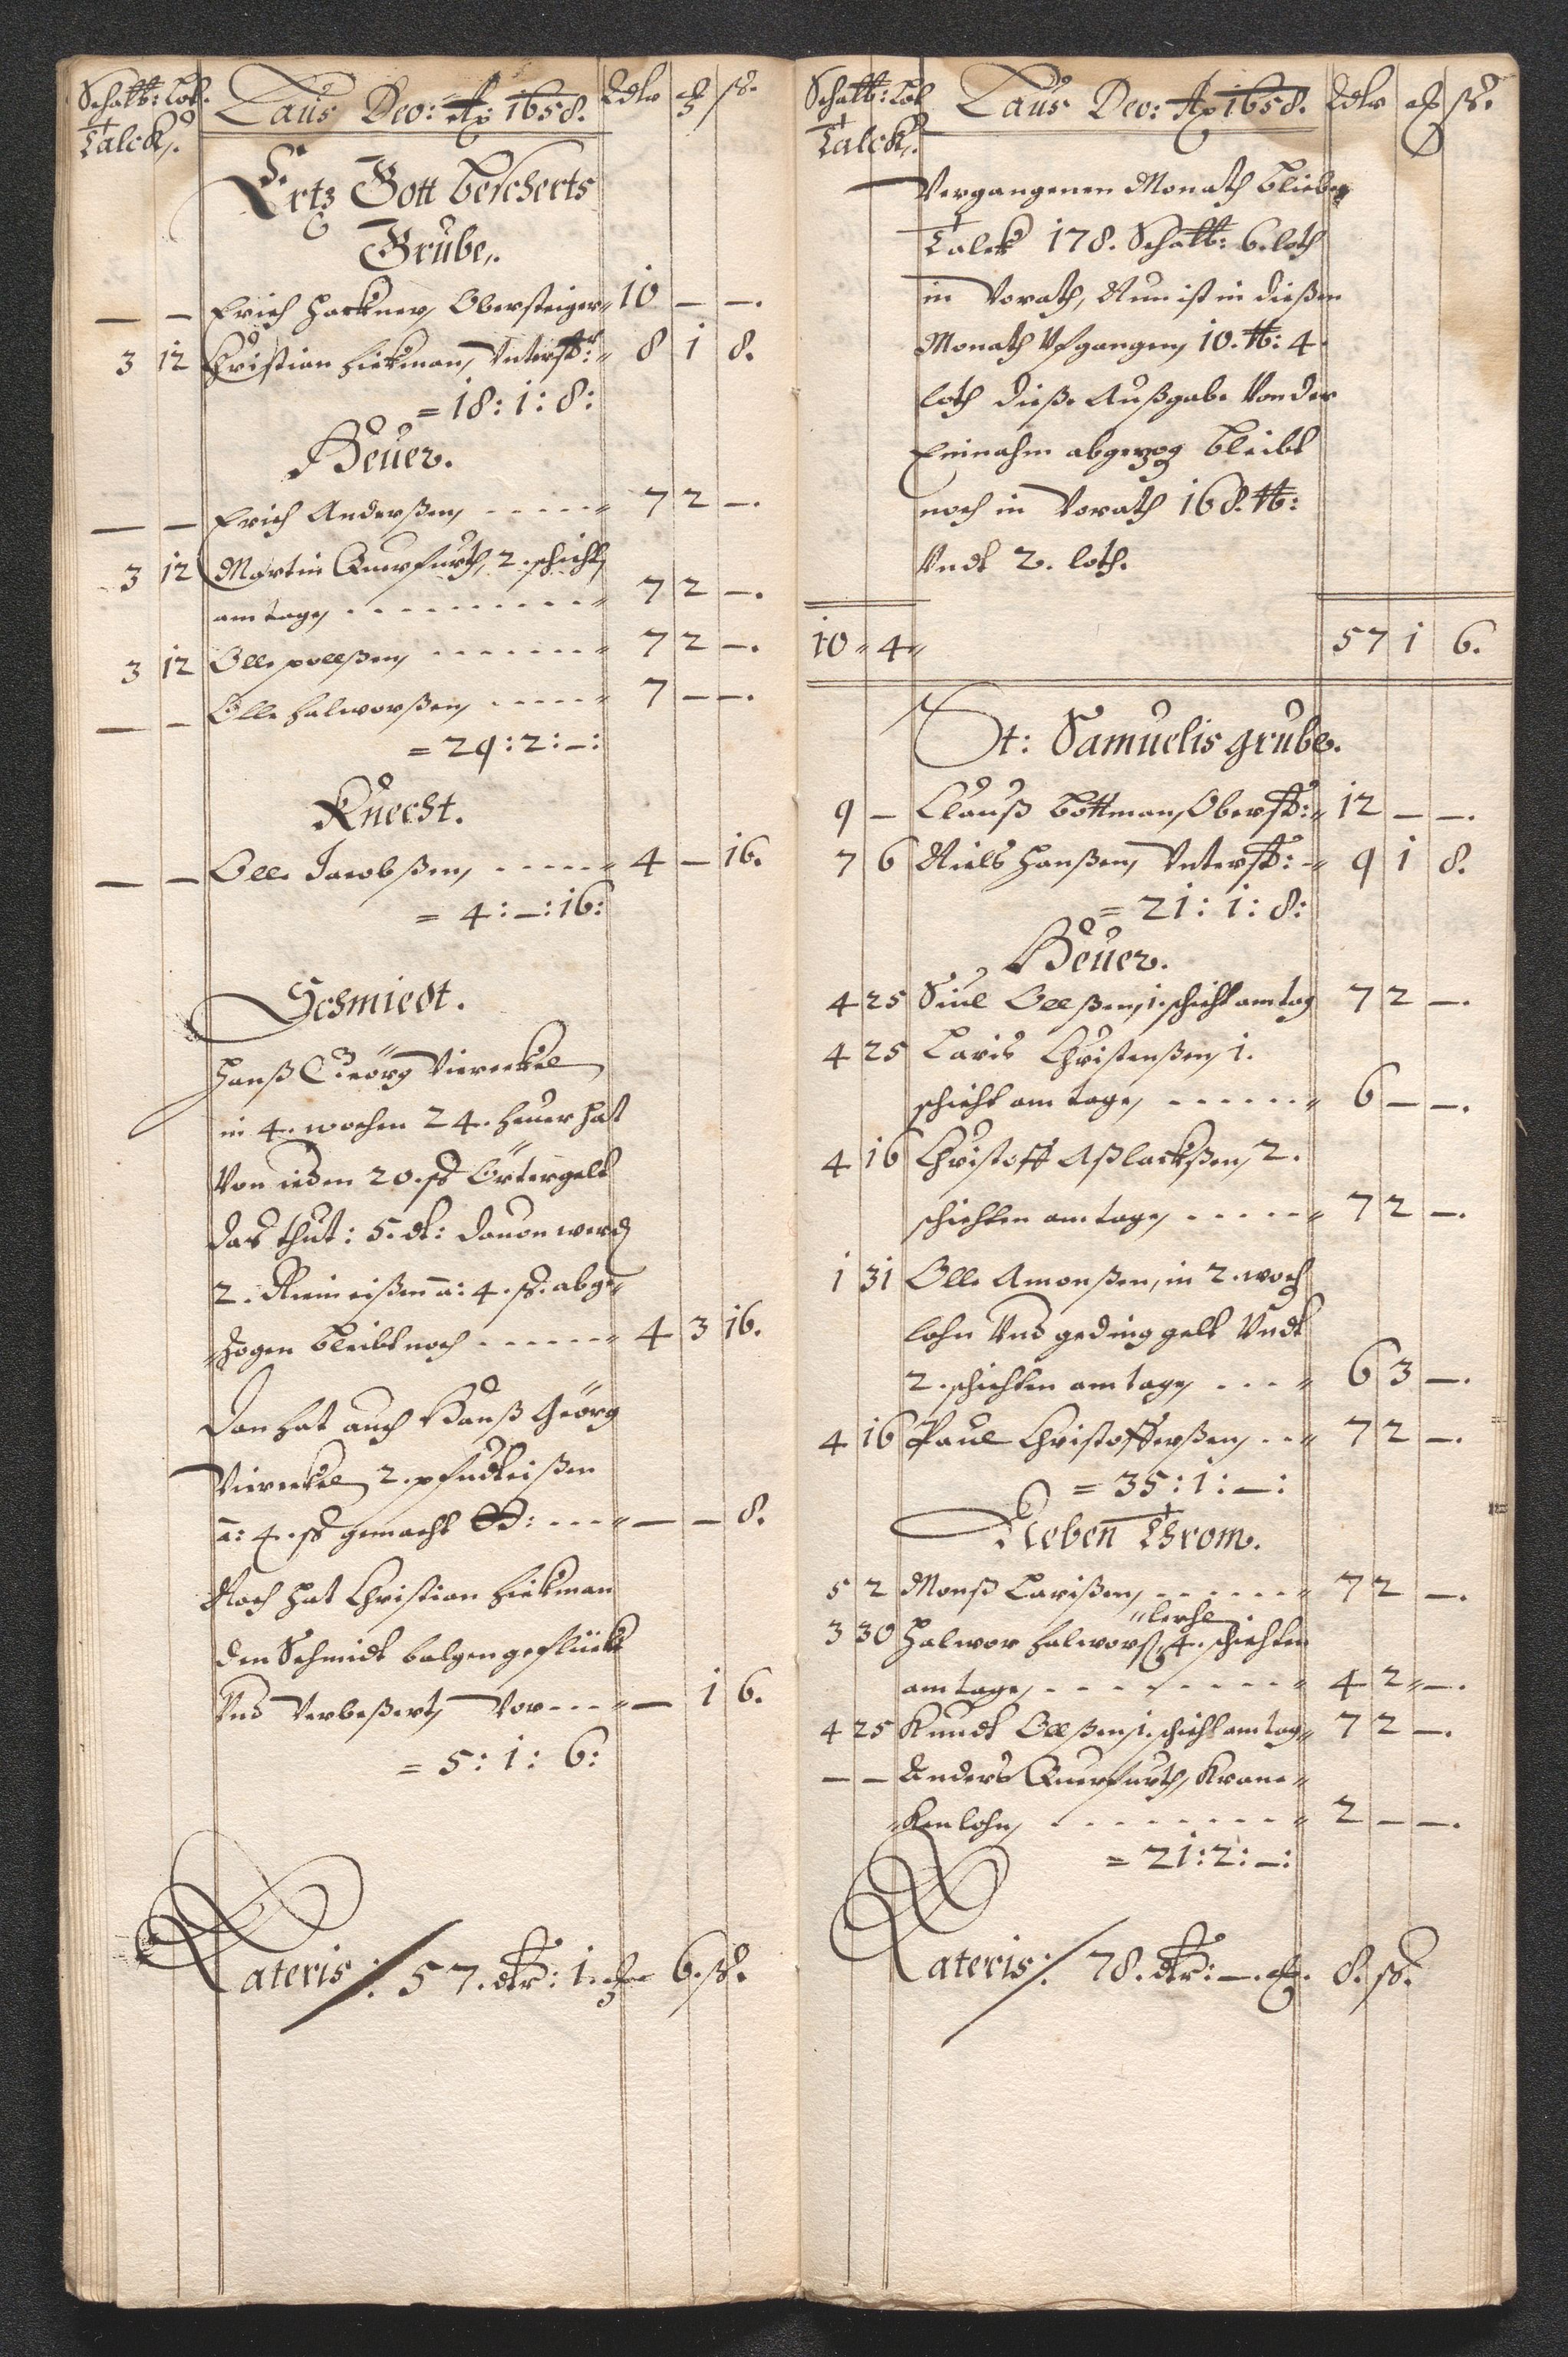 Schalk: Lot. Laus Deo: Ao: 1658. Rdlr ß.
Talck,.
Ertz Gott bescherts
Grube,.
— — Erich Hackner, Obersteiger 10 — —.
3 12 Christian Hickman, Unterst: 8 1 8.
= 18: 1: 8:
Heuer.
— — Erich Anderßen, - - - - - 7 2 —.
3 12 Martin Querfurth, 2. schicht,
am tage, - - - - - - - - - 7 2 —.
3 12 Olle pollßen, - - - - - - - 7 2 —.
— — Olle Halworßen, - - - - - 7 — —.
= 29: 2: —:
Knecht.
— — Olle Jacobßen, - - - - - 4 — 16.
= 4: —: 16:
Schmiedt.
Hanß Georg Vierenkel
in 4. wochen 24. heuer hat
Von ieden 20. ß Örtergelt
das thut: 5. dl: dauon werd
2. eißen a: 4. ß. abge-
zogen bleibt noch - - - - - 4 3 16.
Dan hat auch Hanß Georg
Vierenkel, 2. eißen
a: 4. ß gemacht - - - — — 8.
Noch hat Christian Hickman
den Schmidt balgen geflückt
Und Verbeßert, Vor - - - — 1 6.
= 5: 1: 6:
Lateris: / 57. dlr: 1. 6. ß.
Schalk: Lot Laus Deo: Ao 1658. Rdlr ß.
Talck,.
Vergangenen Monath bliebe
Talck 178. Schalk: 6. loth
in Vorath, Nun ist in dießen
Monath Ufgangen, 10. ℔: 4
loth dieße Außgabe Von der
Einnahm abgezog bleibt
noch in Vorath 168. ℔:
Undt 2. loth.
10 4 57 1 6.
St: Samuelis grube.
9 — Clauß Bottman, Oberst: 12 — —.
7 6 Niels Hanßen, Unterst: 9 1 8.
= 21: 1: 8:
Heuer.
4 25 Siul Ollßen, 1. schicht am tag 7 2 —.
4 25 Laris Christenßen, 1.
schicht am tage, - - - - - - 6 — —.
4 16 Christoff Aßlackßen, 2.
schichten am tage, - - - - - 7 2 —.
1 31 Olle Amonßen, in 2. woch
lohn Und geding gelt Undt
2. schichten am tage, - - - 6 3 —.
4 16 Paul Christofferßen, - - 7 2 —.
= 35: 1: —:
Neben Throm.
5 2 Monß Larißen, - - - - - - 7 2 —.
3 30 Halwor Halworß, 4. schichten
am tage, - - - - - - - - - 4 2 —.
4 25 Knudt Ollßen, 1. schicht am tag 7 2 —.
— — Anders Querfurth, Kran-
ken lohn, - - - - - - - - - 2 — —.
= 21: 2: —:
Lateris: / 78. dlr: —. 8. ß.